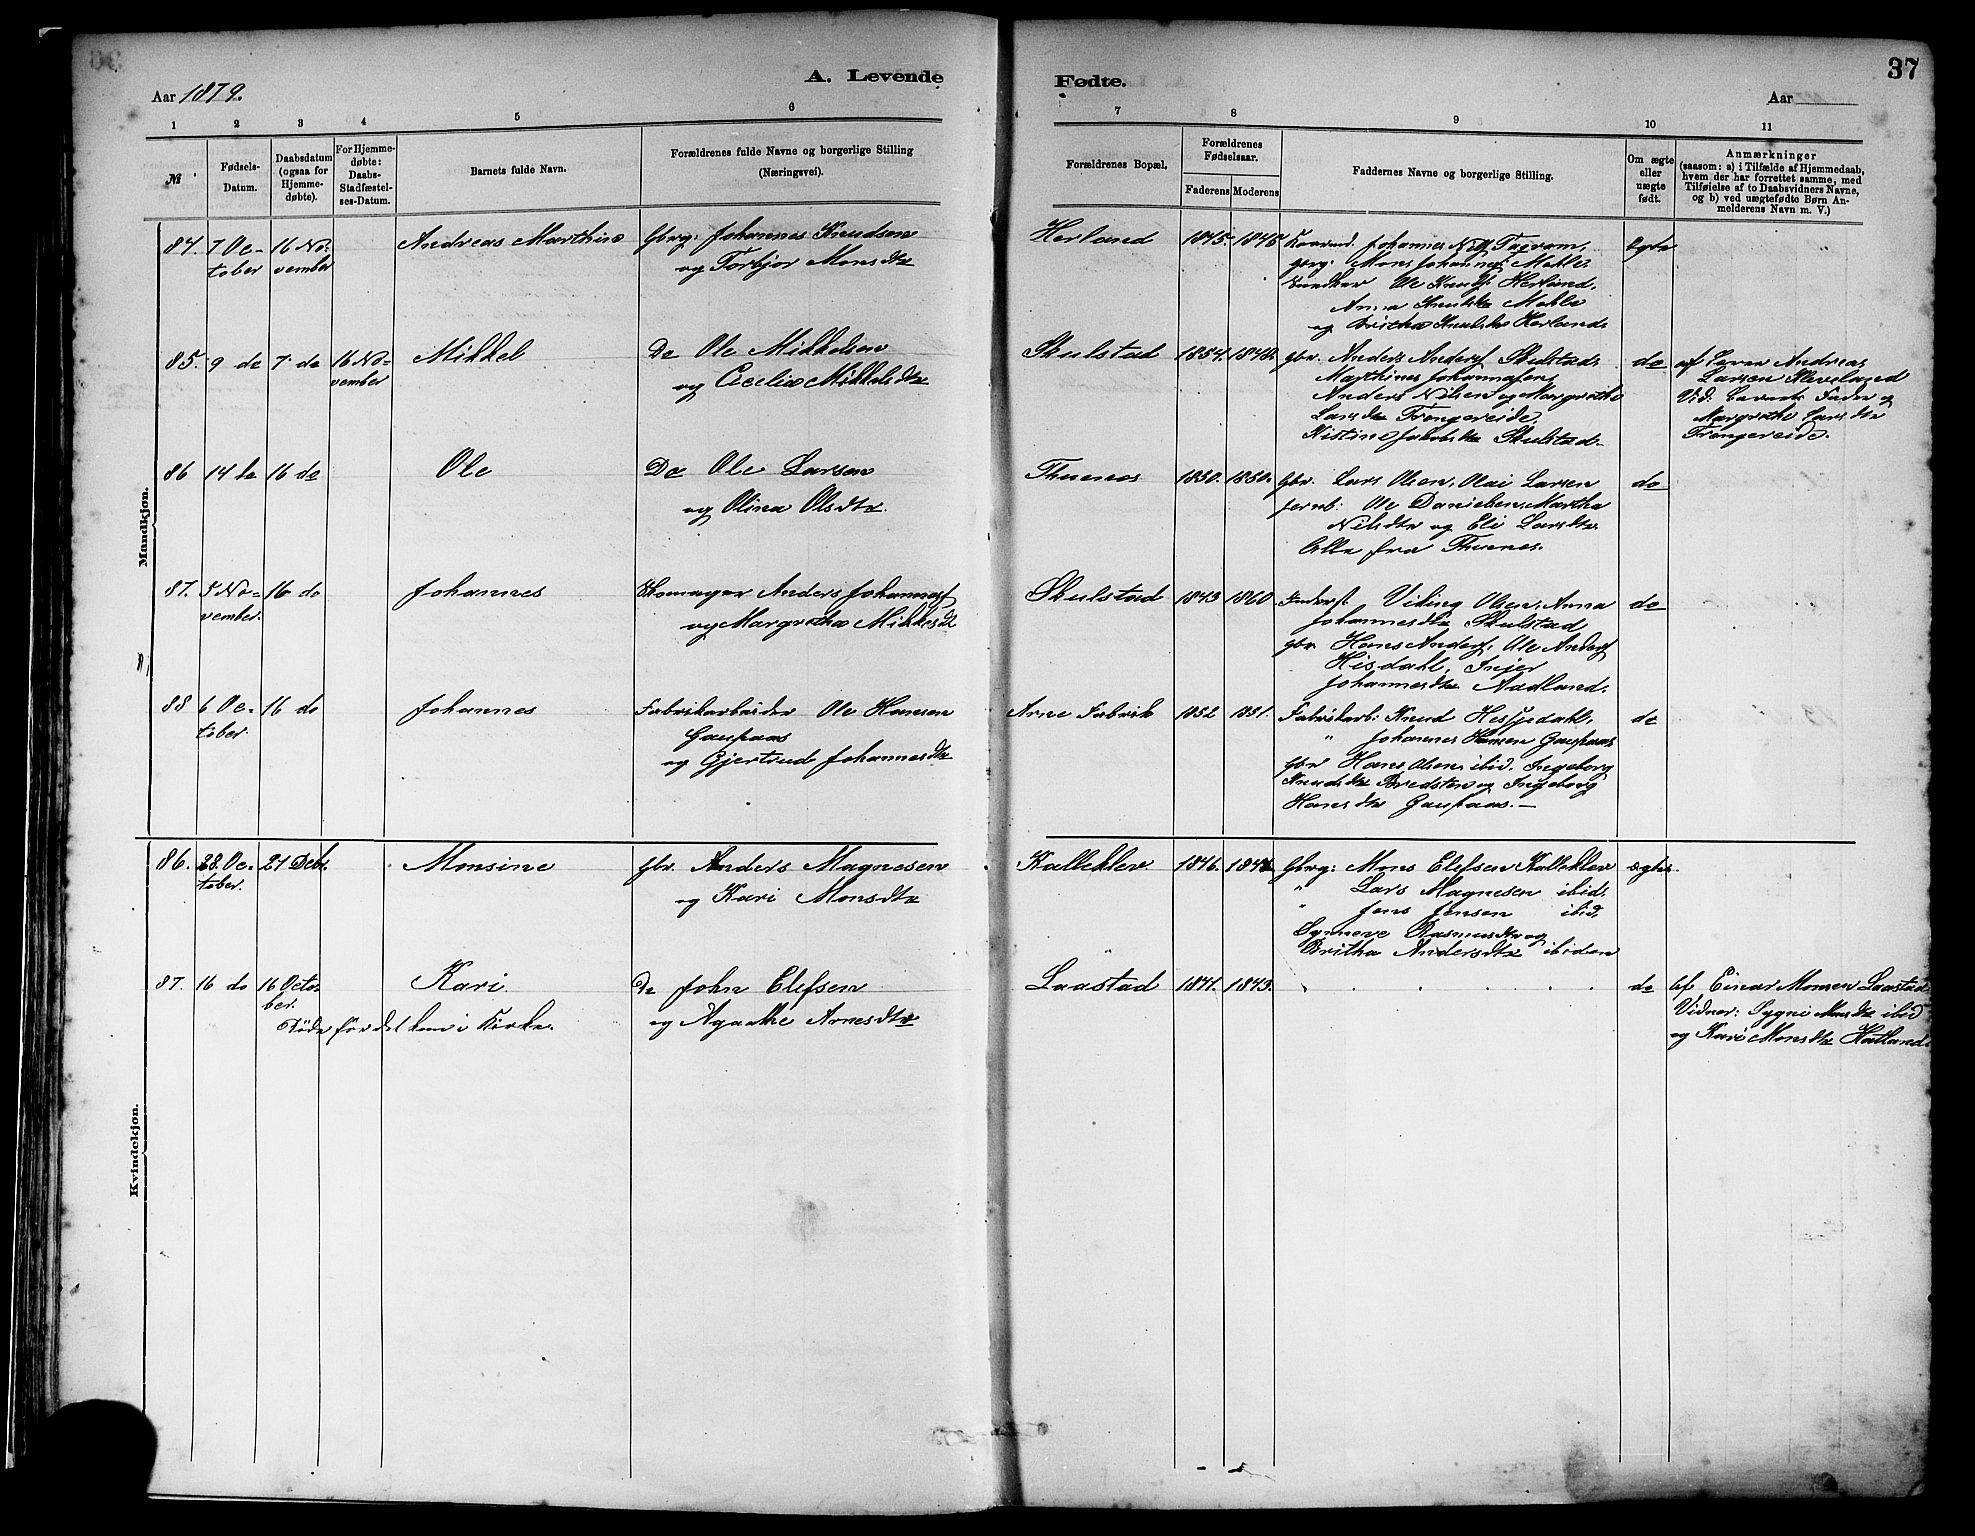 37
A. Levende Fødte.
Aar 1879. Aar
1 2 3 4 5 6 7 8 9 10 11
№
Fødsels-Datum.
Daabsdatum (ogsaa for Hjemmedøbte).
For Hjemmedøbte: Daabs-Stadfæstelses-Datum.
Barnets fulde Navn.
Forældrenes fulde Navne og borgerlige Stilling (Næringsvei).
Forældrenes Bopæl.
Forældrenes Fødselsaar.
Faderens Moderens
Faddernes Navne og borgerlige Stilling.
Om ægte eller uægte født.
Anmærkninger
(saasom: a) i Tilfælde af Hjemmedaab,
hvem der har forrettet samme, med
Tilføielse af to Daabsvidners Navne,
og b) ved uægtefødte Børn An-
melderens Navn m. V.)
Mandkjøn.
84. 7 Oc- 16 No- Andreas Marthin Gbrg: Johannes Knudsen Herland 1845. Johannes
tober vember og Torbjor Monsdtr
gbrg: Mons Mohle
Ole Herland,
Anna Mohle
og Britha Herland
85. 9 do 7 do 16 No- Mikkel Do Ole Mikkelsen Skulstad 1854. gbr. Anders Skulstad do af Andreas
vember og Cecelia Mikkelsdtr Larsen Kleveland
Anders Nilsen og Margrethe Vid: Barnets Fader og
Larsdtr Trengereide, Margrethe Larsdtr
Kistine Skulstad. Trengereide.
86 14 do 16 do Ole Do Ole Larsen Thuenes 1850. 1850. gbr. Lars Olsen, Olai Larsen do
og Olina Olsdtr. Ole Danielsen, Martha
Nilsdtr og Eli Larsdtr.
Alle fra Thuenes.
87. 5 No- 16 do Johannes Skomager Anders Johannes Skulstad 1843 1860 Viking Olsen, Anna do
vember. og Margretha Mikkelsdtr Johannesdtr Skulstad
gbr Hans Anders, Ole Anders
Hisdahl, Injer
Johannesdtr Aadland.
88 6 Oc- 16 do Johannes Fabrikarbeider Ole Hansen Arne Fabrik 1852 1851. Fabrikarb: Knud Hesjedahl, do
tober. Gaupaas " Johannes Hansen Gaupaas
og Gjertrud Johannesdtr gbr Hans Olsen ibid. Ingeborg
Knudsdtr Bredsten og Ingeborg
Hansdtr Gaupaas. —
Kvindekjøn.
86. 28. Oc- 21 Debr. Monsine Gbr. Anders Magnesen Kalleklev 1846. Gbrg: Mons Elefsen Kalleklev ægte
tober. og Kari Monsdtr " Lars Magnesen ibid.
" Jens Jensen ibid.
Synneve Rasmusdtr og
Britha Andersdtr ibidem
87. 16 do 16 Octo- Kari do John Elefsen Laastad 1843. do af Einar Monsen Laastad
ber. og Agathe Arnesdtr Vidner: Sygni Monsdtr ibid
Døde før det kom i Kirke. og Kari Monsdtr Hatland.